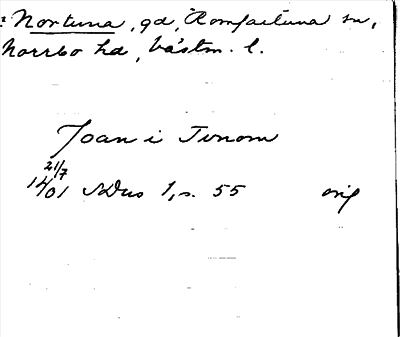 Nortuna, gd, Romfartuna sn,
Norrbo hd, Västm. l.
Joan i Tunom
21/7
1401 SDns 1, s. 55 orig